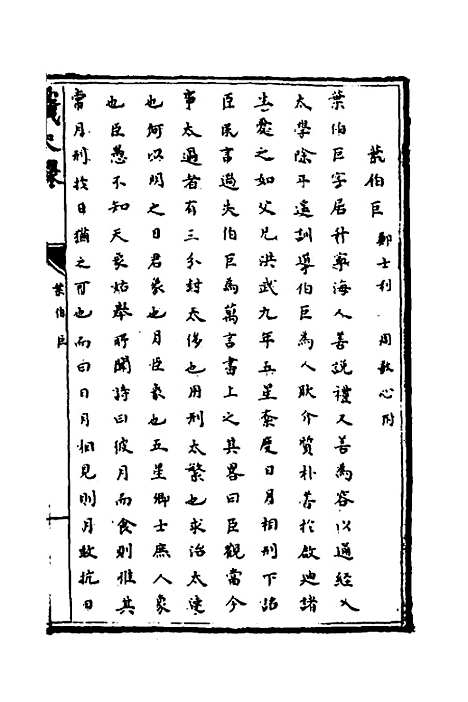 葉伯巨 鄭士利 周敬心附
葉伯巨字居升寧海人善說禮又善為容以通經入
太學除平遙訓導伯巨為人耿介質朴善於啟迪諸
生愛之如父兄洪武九年五星紊度日月相刑下詔
臣民言過失伯巨為萬言書上之其畧曰臣觀當今
事太過者有三分封太侈也用刑太繁也求治太速
也何以明之曰君象也月臣象也五星卿士庶人象
也臣愚不知天象姑舉所聞詩曰彼月而食則惟其
常月刑於日猶之可也而曰日月相見則月敢抗日
葉伯巨